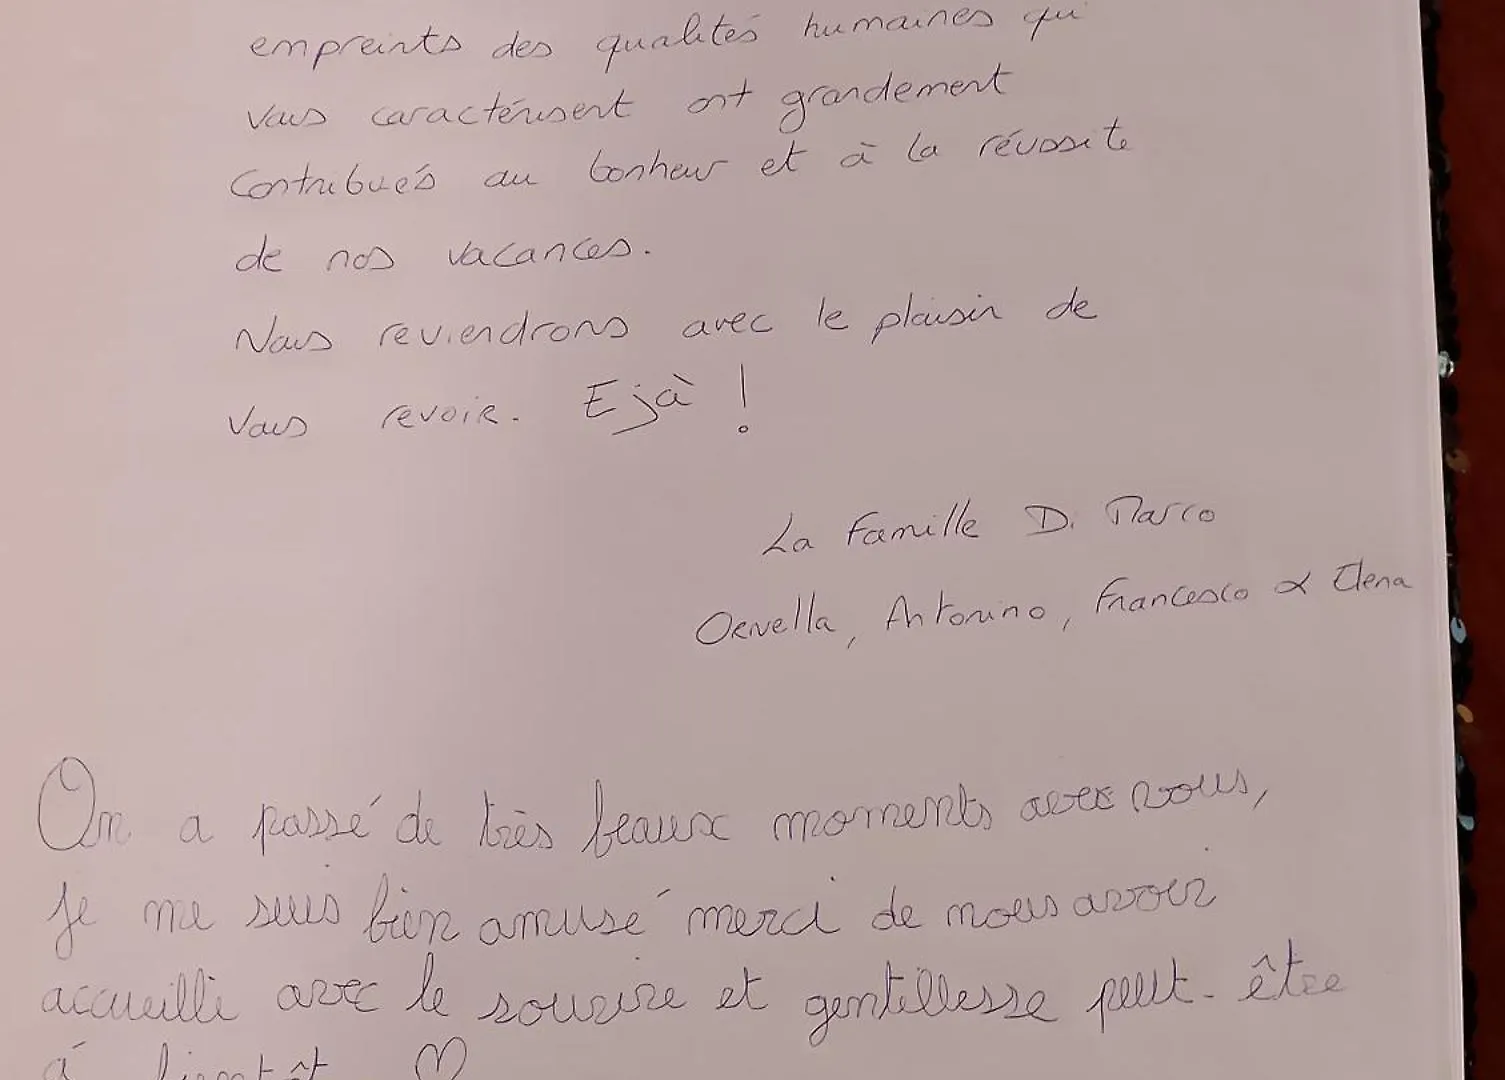 empreints des qualités humaines qui
vous caractérisent ont grandement
contribués au bonheur et à la réussite
de nos vacances.
Nous reviendrons avec le plaisir de
vous revoir. Ejà !
La famille Di Marco
Ornella, Antonino, Francesco & Elena
On a passé de très beaux moments avec vous,
je me suis bien amusé merci de nous avoir
accueilli avec le sourire et gentillesse peut-être
à bientôt ♡